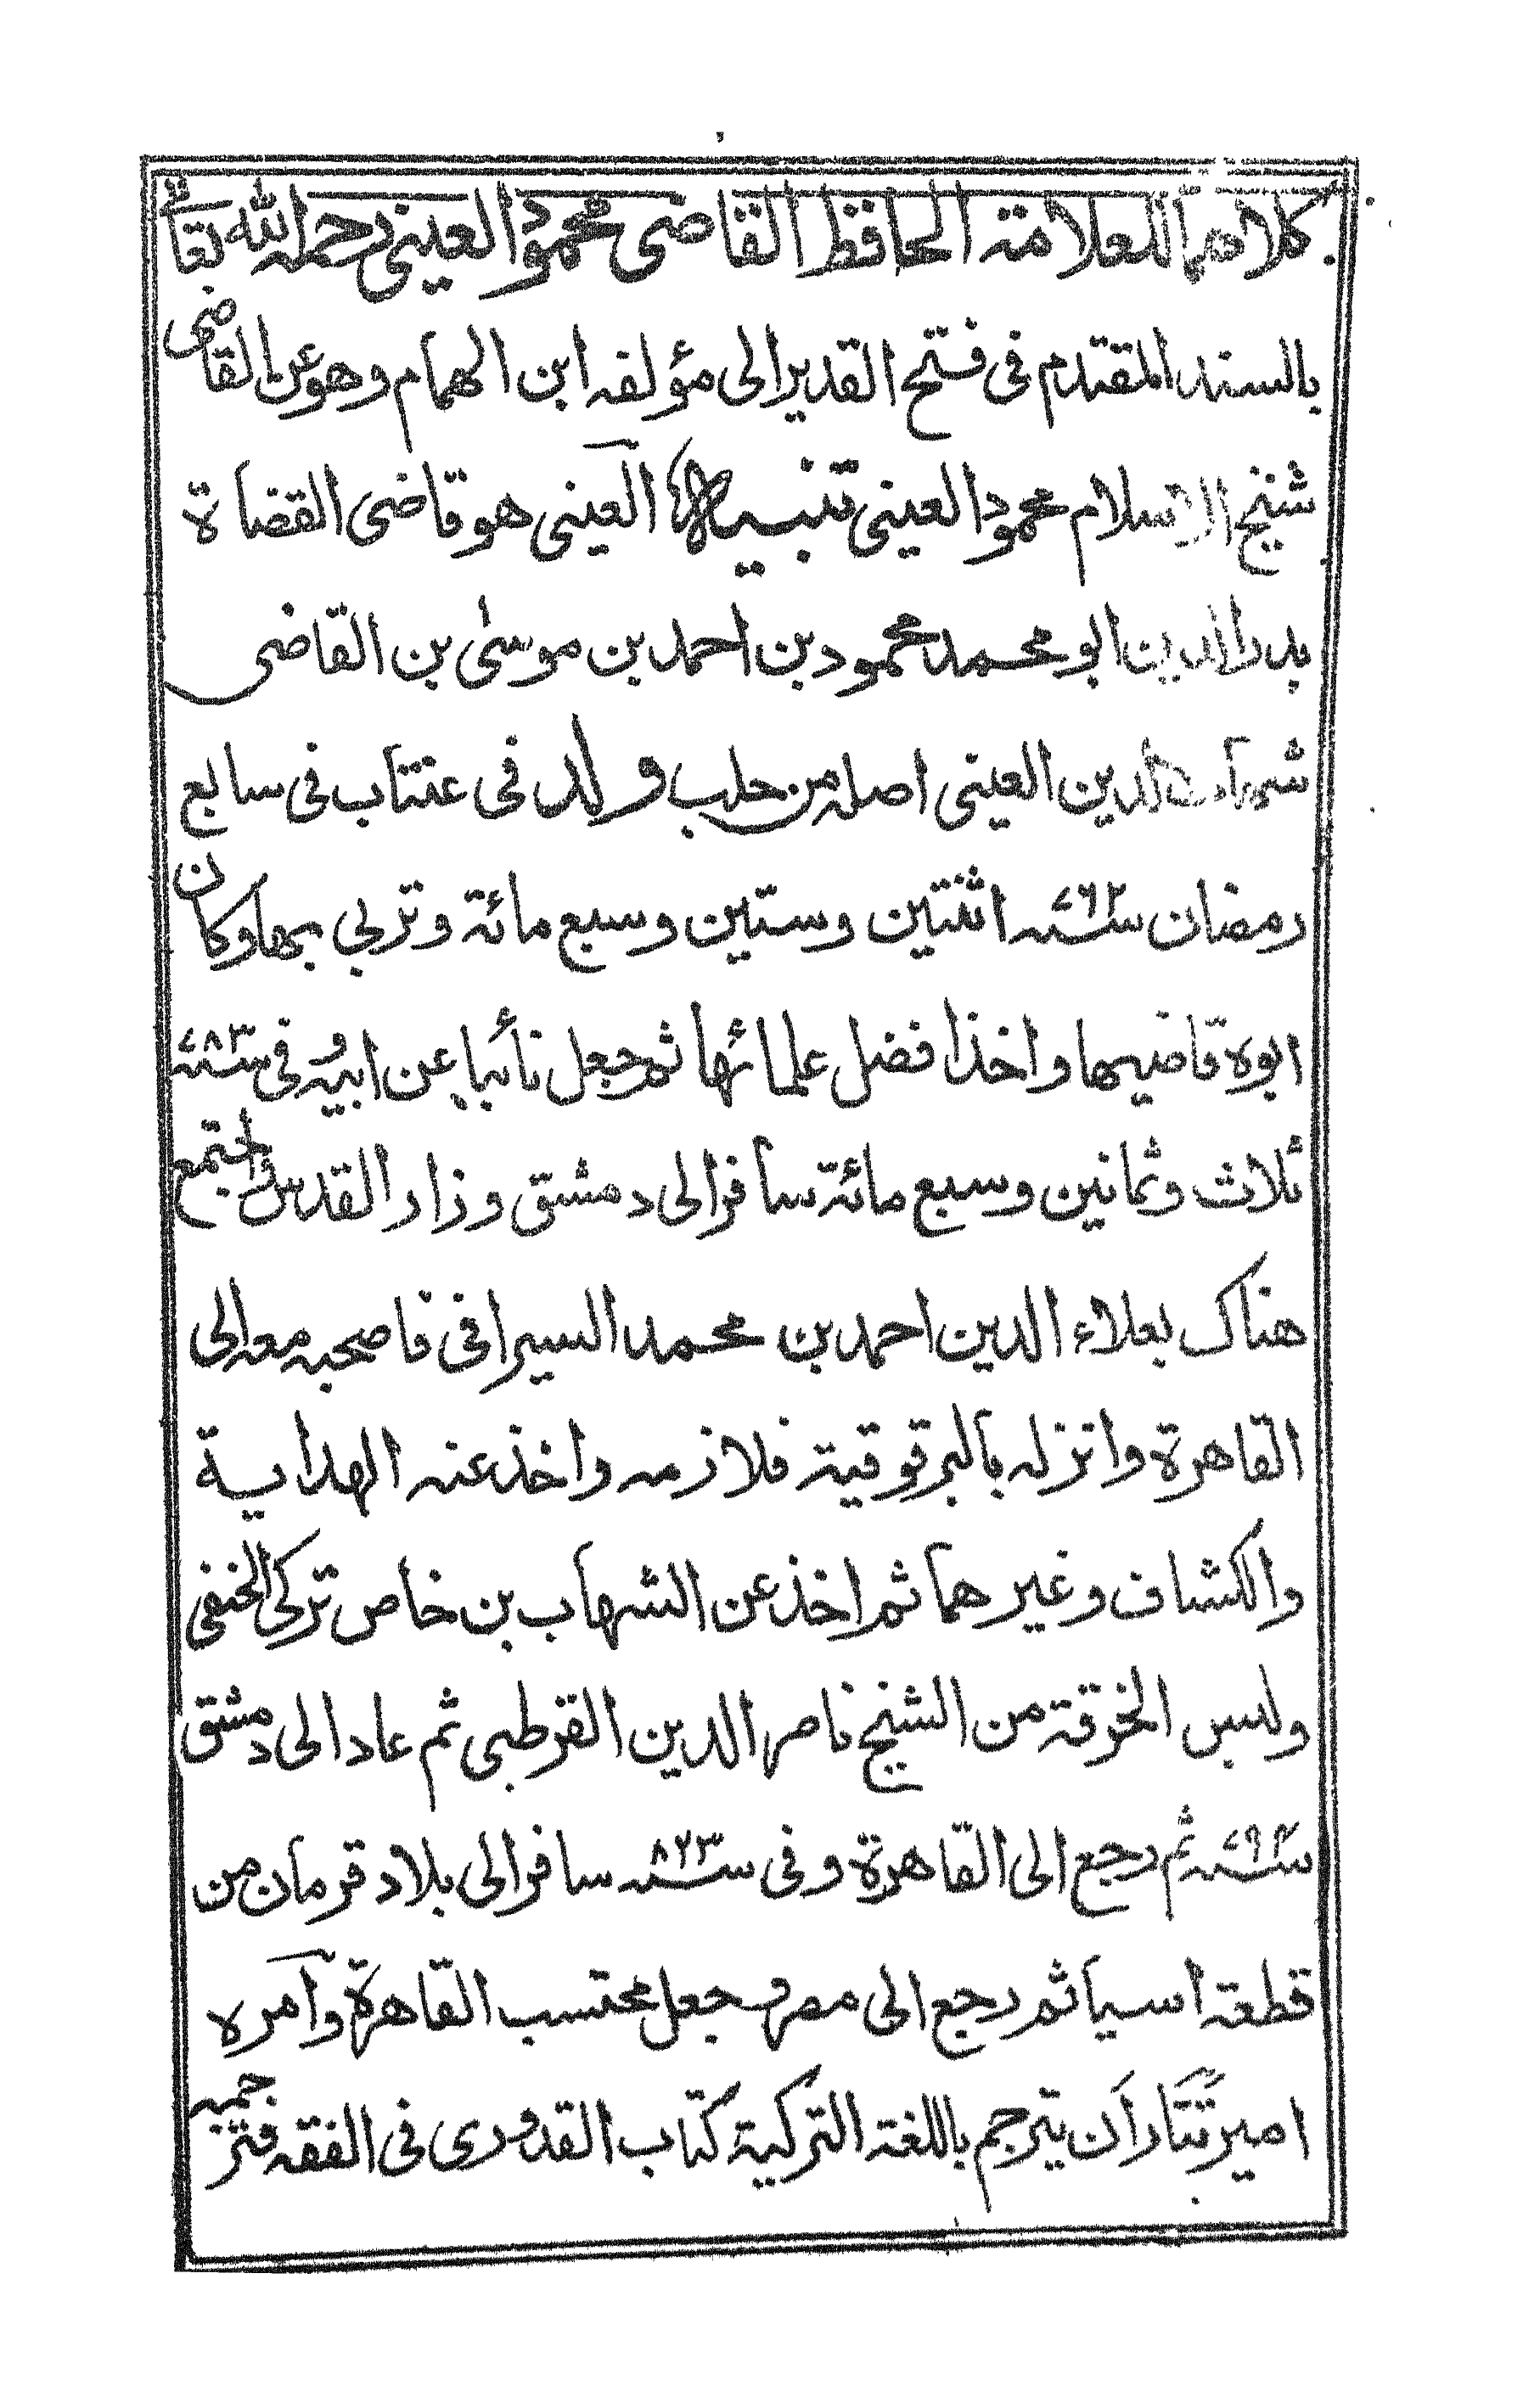 كلاهما للعلامة الحافظ القاضى محمود العينى رحمه الله تعالى
بالسند المقتدم فى فتح القدير الى مؤلفه ابن الهمام وهو عن القاضى
شيخ الاسلام محمود العينى تنبيه العينى هو قاضى القضاة
بدر الدين ابو محمد محمود بن احمد بن موسى بن القاضى
شهاب الدين العينى اصله من حلب ولد فى عنتاب فى سابع
رمضان سنة ٧٦٢ اثنتين وستين وسبع مائة وتربي بها وكان
ابوه قاضيها واخذ افضل علمائها ثم جعل نائبا عن ابيه وفى سنة ٧٨٣
ثلاث وثمانين وسبع مائة سافر الى دمشق وزار القدس واجتمع
هناك بعلاء الدين احمد بن محمد السيرافى فاصحبه معه الى
القاهرة وانزله بالبرقوقية فلازمه واخذ عنه الهداية
والكشاف وغيرهما ثم اخذ عن الشهاب بن خاص تركى الحنفى
ولبس الخرقة من الشيخ ناصر الدين القرطبى ثم عاد الى دمشق
سنة ٧٩٤ ثم رجع الى القاهرة وفى سنة ٨٢٣ سافر الى بلاد قرمان من
قطعة اسيا ثم رجع الى مصر وجعل محتسب القاهرة وآمره
امير تتار أن يترجم باللغة التركية كتاب القدورى فى الفقه فترجمه